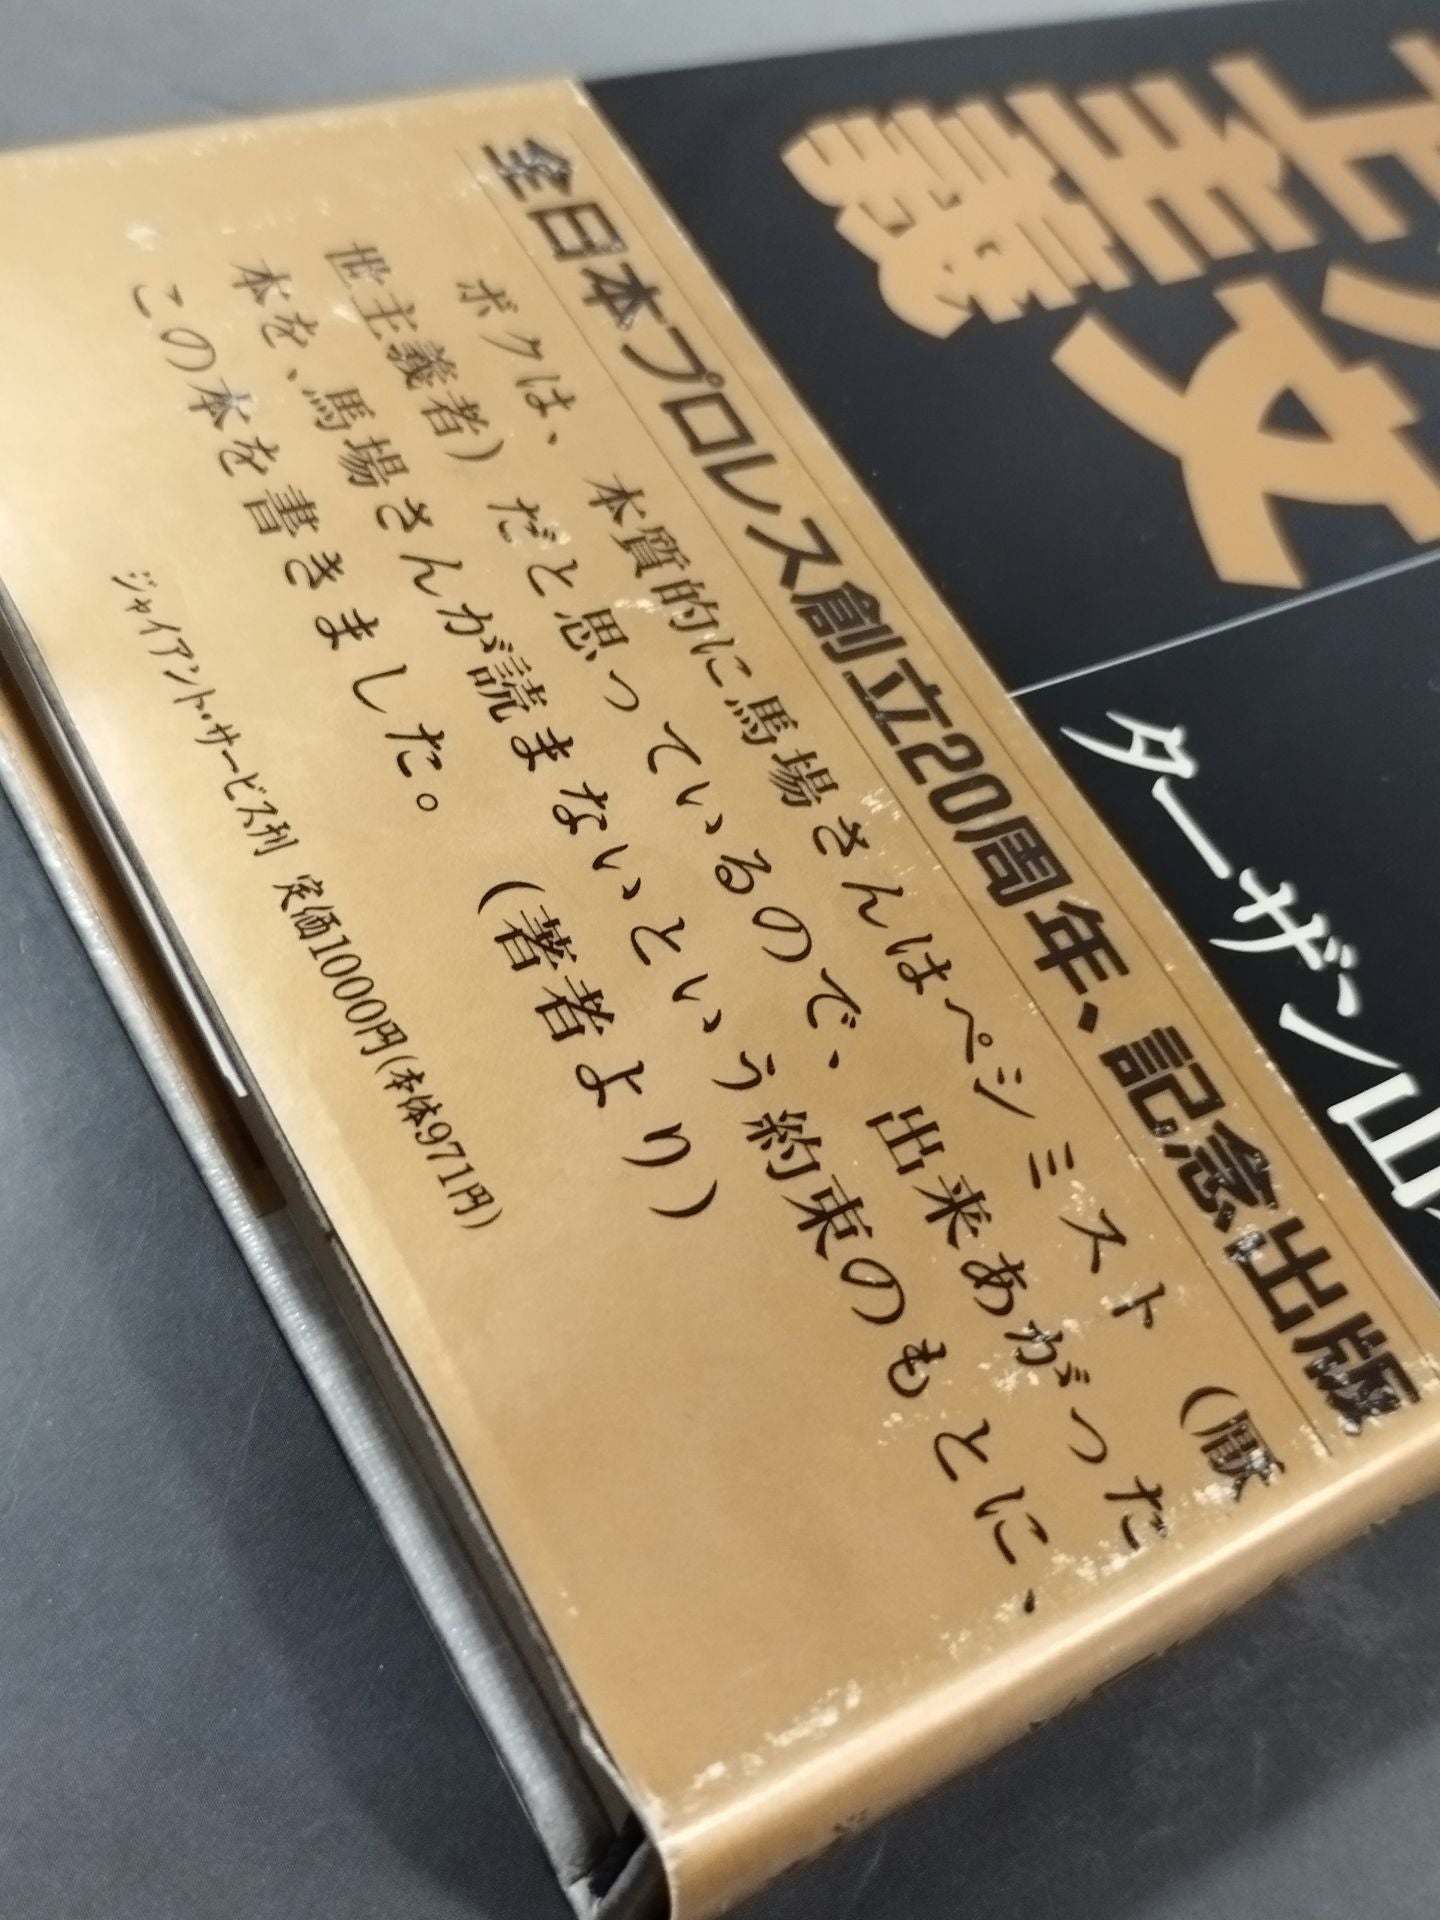 主義
ターザン山
全日本プロレス創立20周年、記念出版
ボクは、本質的に馬場さんはペシミスト（厭
世主義者）だと思っているので、出来あがった
本を、馬場さんが読まないという約束のもとに、
この本を書きました。　（著者より）
ジャイアント・サービス刊　定価1000円(本体971円)